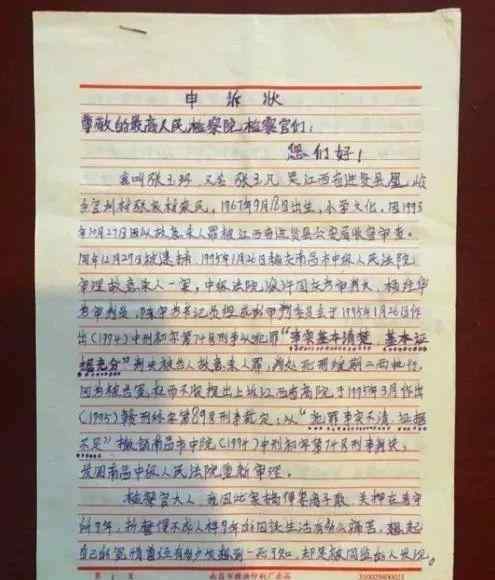 申诉状
尊敬的最高人民检察院检察官们：
您们好！
我叫张玉环 又名 张玉凡 是江西省进贤县凰岭
乡官圳村张家村农民，1967年9月 日出生，小学文化，因1993
年10月27日因以故意杀人罪被江西省进贤县公安局收容审查。
同年12月29日被逮捕，1995年1月26日被南昌市中级人民法院
审理故意杀人一案，中级法院 审判长，
审判员， 书记员 审判委员会于1995年1月26日作
出(1994)中刑初字第74号刑事 以犯罪“事实基本清楚，基本证
据充分”判决被告人故意杀人罪，判处死刑缓期二年执行，
被告 不服提出上诉江西省高院于1995年3月作出
(1995)赣刑终字第89号刑事裁定，以“犯罪事实不清，证据
不足”撤销南昌市中院(1994)中刑初字第74号刑事判决，
发回南昌中级人民法院重新审理。
检察官大人，我因此案搞得妻离子散，关押在看守
所9年，折磨得不成人样9年的囚徒生活有多么痛苦，想起
自己的冤情
第 1 页 南昌市 印刷厂出品 3100296002